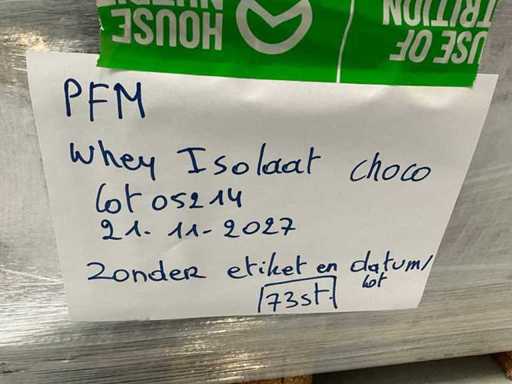 HOUSE
NUTRI
USE OF
TRITION
PFM
Whey Isolaat choco
lot 05214
21-11-2027
Zonder etiket en datum/
lot
73st.